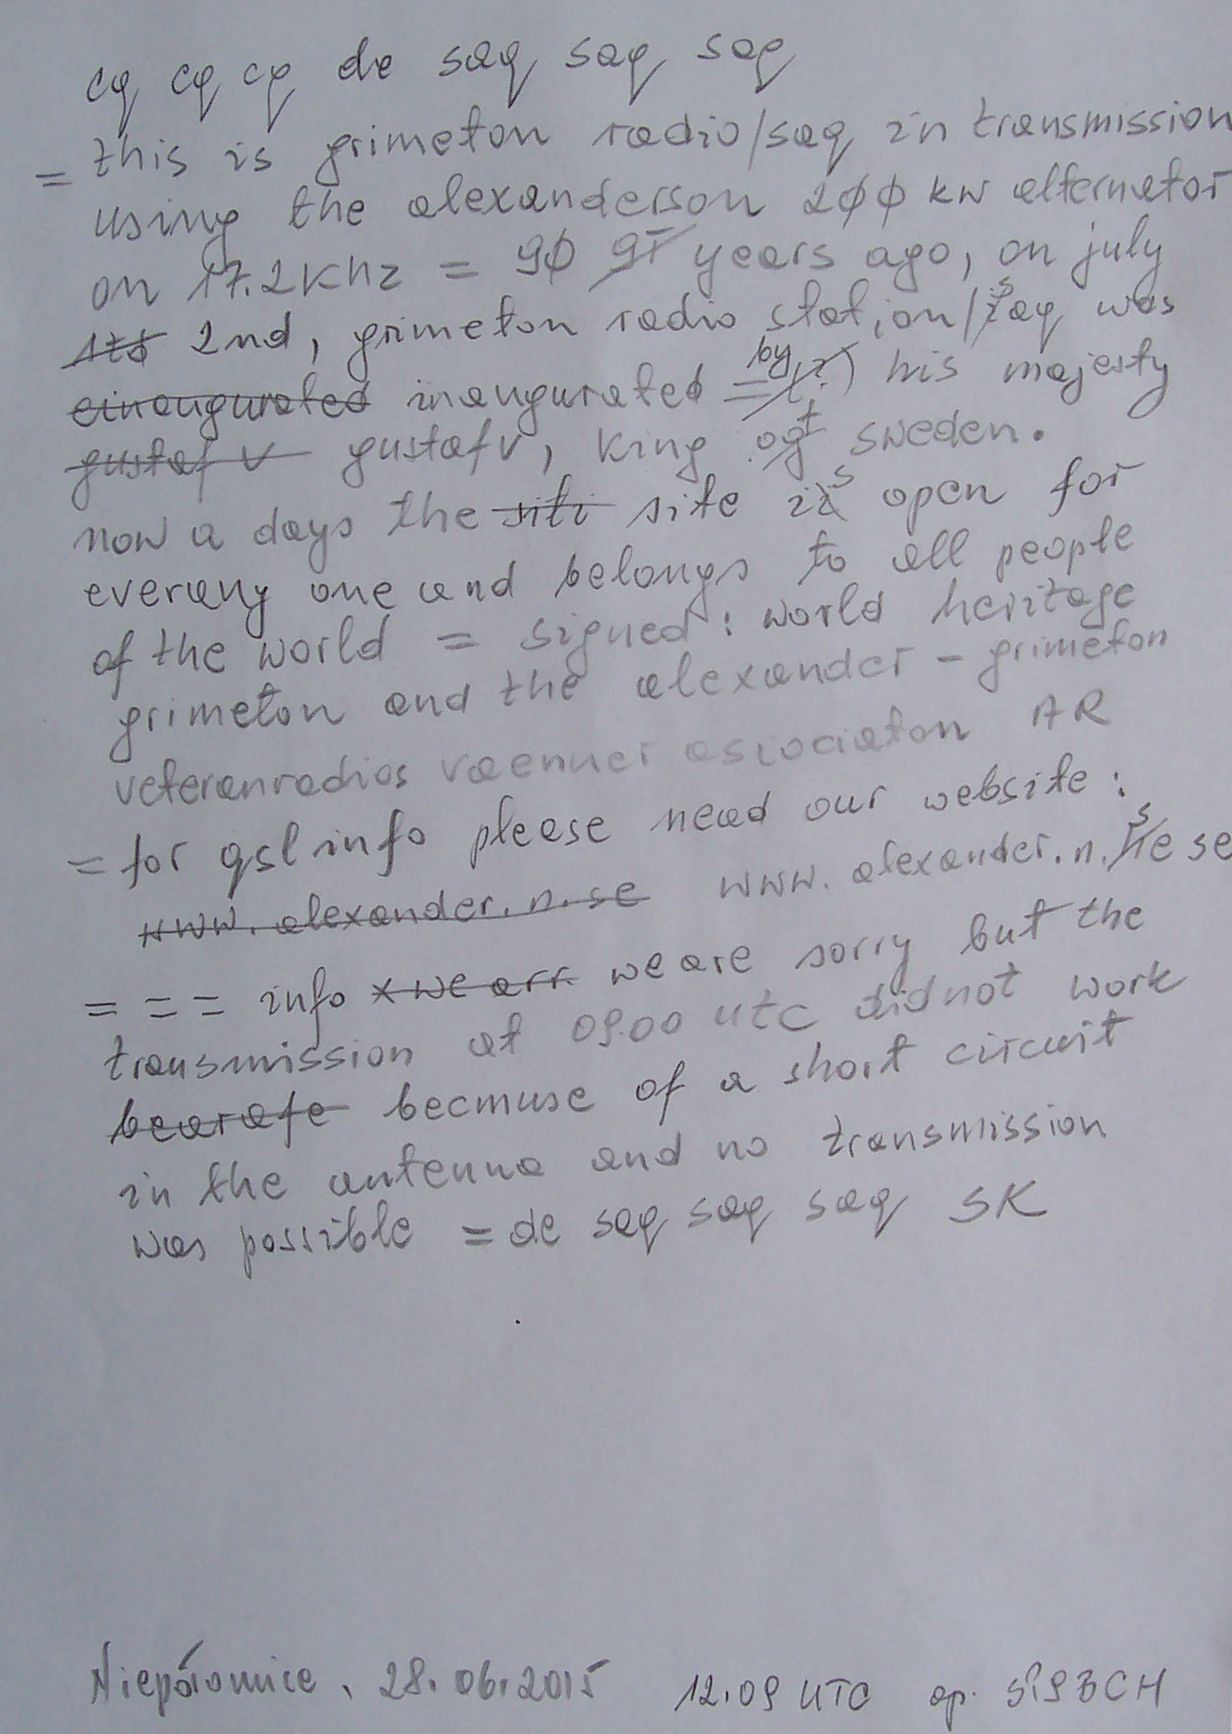 cq cq cq de saq saq saq
= this is grimeton radio/saq in transmission
using the alexanderson 2øø kw alternator
on 17.2khz = 9ø 91 years ago, on july
2nd, grimeton radio station/saq was
einaugurated inaugurated = by (?) his majesty
gustaf v gustaf v, king of sweden.
now a days the siti site is open for
everany one and belongs to all people
of the world = signed: world heritage
grimeton and the alexander - grimeton
veteranradios vaenner asiociaton AR
= for qsl info please nead our website:
www.alexander.n.se www.alexander.n.se se
= = = info x we arr we are sorry but the
transmission at 0900 utc did not work
bearafe becmuse of a short circuit
in the antenna and no transmission
was possible = de saq saq saq SK
Niepołomice, 28.06.2015 12.09 UTC op.